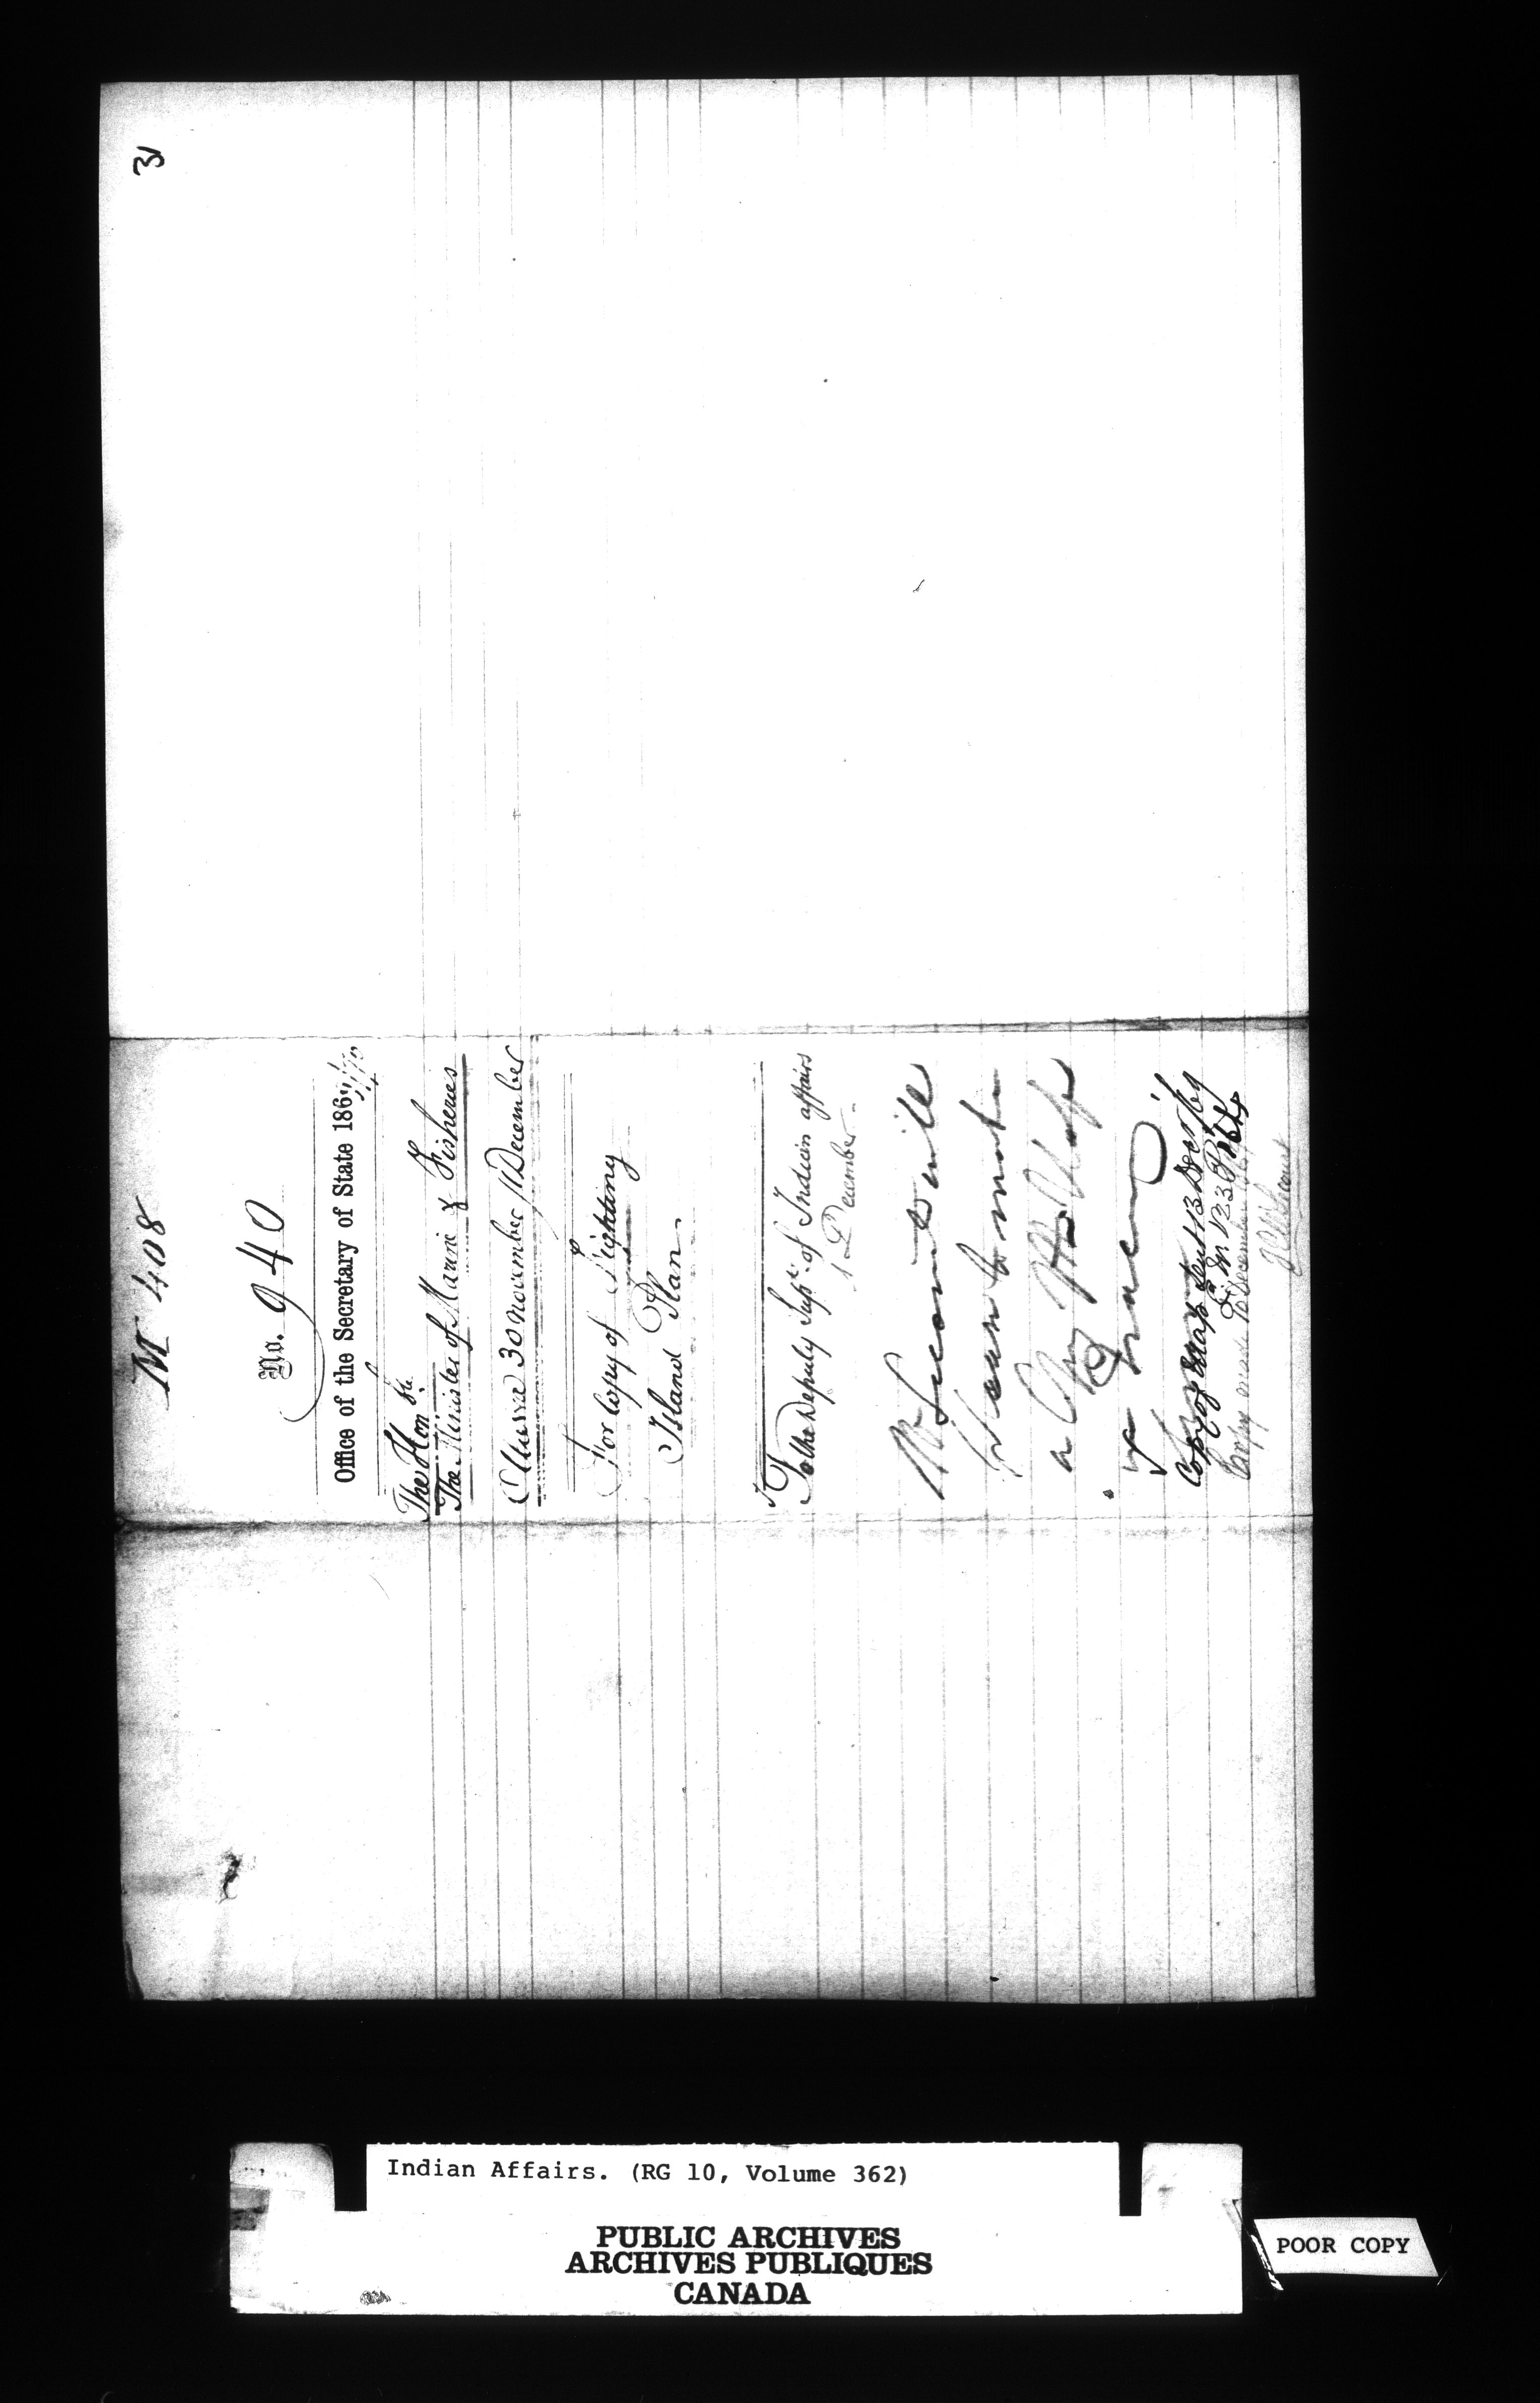 31
M 408
No. 940
Office of the Secretary of State 186
The Hon ble
The Minister of Marine & Fisheries
Ottawa 30 November /1 December
For copy of Fighting
Island Plan
To the Deputy Supt. of Indian affairs
1 December
Mr will
to make
a
of
tracing
Copy of Map sent 13 Decr by
Copy made 10 December
Indian Affairs. (RG 10, Volume 362)
PUBLIC ARCHIVES
ARCHIVES PUBLIQUES
CANADA
POOR COPY